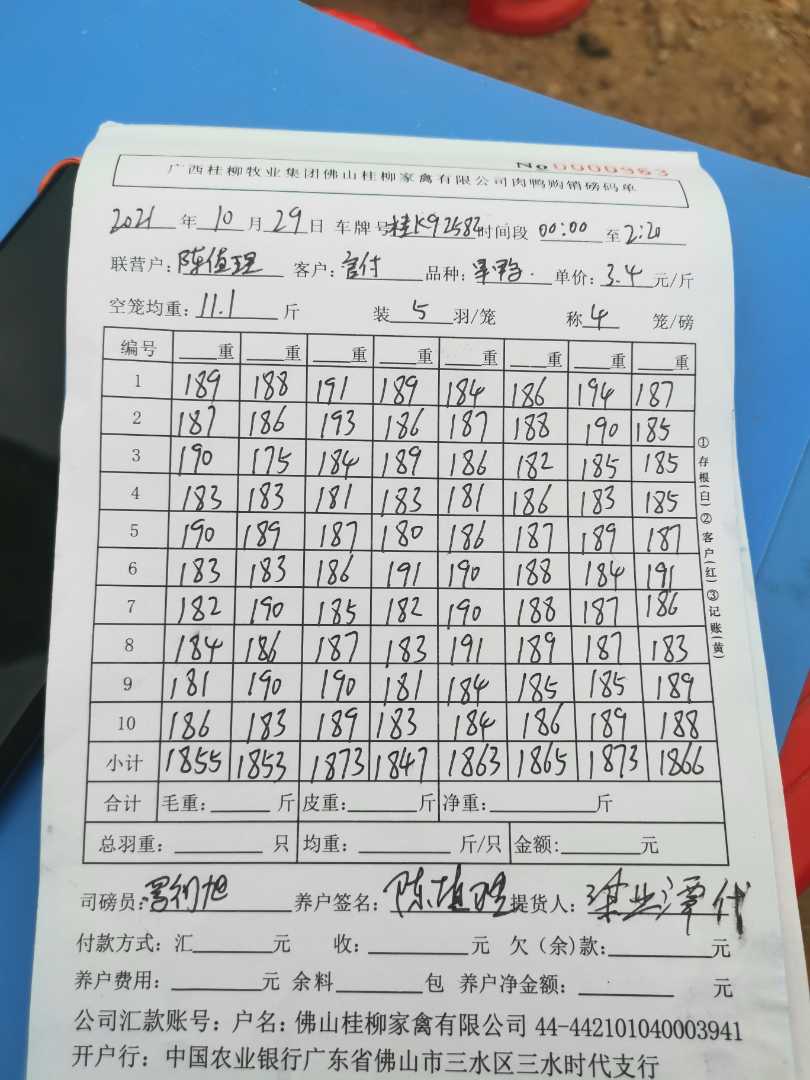 No 0000983
广西桂柳牧业集团佛山桂柳家禽有限公司肉鸭购销磅码单
2021 年 10 月 29 日 车牌号桂K92582 时间段 00:00 至 2:20
联营户: 陈值理 客户: 言付 品种: 单价: 3.4 元/斤
空笼均重: 11.1 斤 装 5 羽/笼 称 4 笼/磅
编号 ___重 ___重 ___重 ___重 ___重 ___重 ___重 ___重
1 189 188 191 189 184 186 194 187
2 187 186 193 186 187 188 190 185
3 190 175 184 189 186 182 185 185
4 183 183 181 183 181 186 183 185
5 190 189 187 180 186 187 189 187
6 183 183 186 191 190 188 184 191
7 182 190 185 182 190 188 187 186
8 184 186 187 183 191 189 187 183
9 181 190 190 181 184 185 185 189
10 186 183 189 183 184 186 189 188
小计 1855 1853 1873 1847 1863 1865 1873 1866
合计 毛重:______斤 皮重:______斤 净重:______斤
总羽重:______只 均重:______斤/只 金额:______元
司磅员: 养户签名: 提货人:
付款方式: 汇______元 收:______元 欠(余)款:______元
养户费用:______元 余料______包 养户净金额:______元
公司汇款账号: 户名: 佛山桂柳家禽有限公司 44-442101040003941
开户行: 中国农业银行广东省佛山市三水区三水时代支行
①存根(白)②客户(红)③记账(黄)